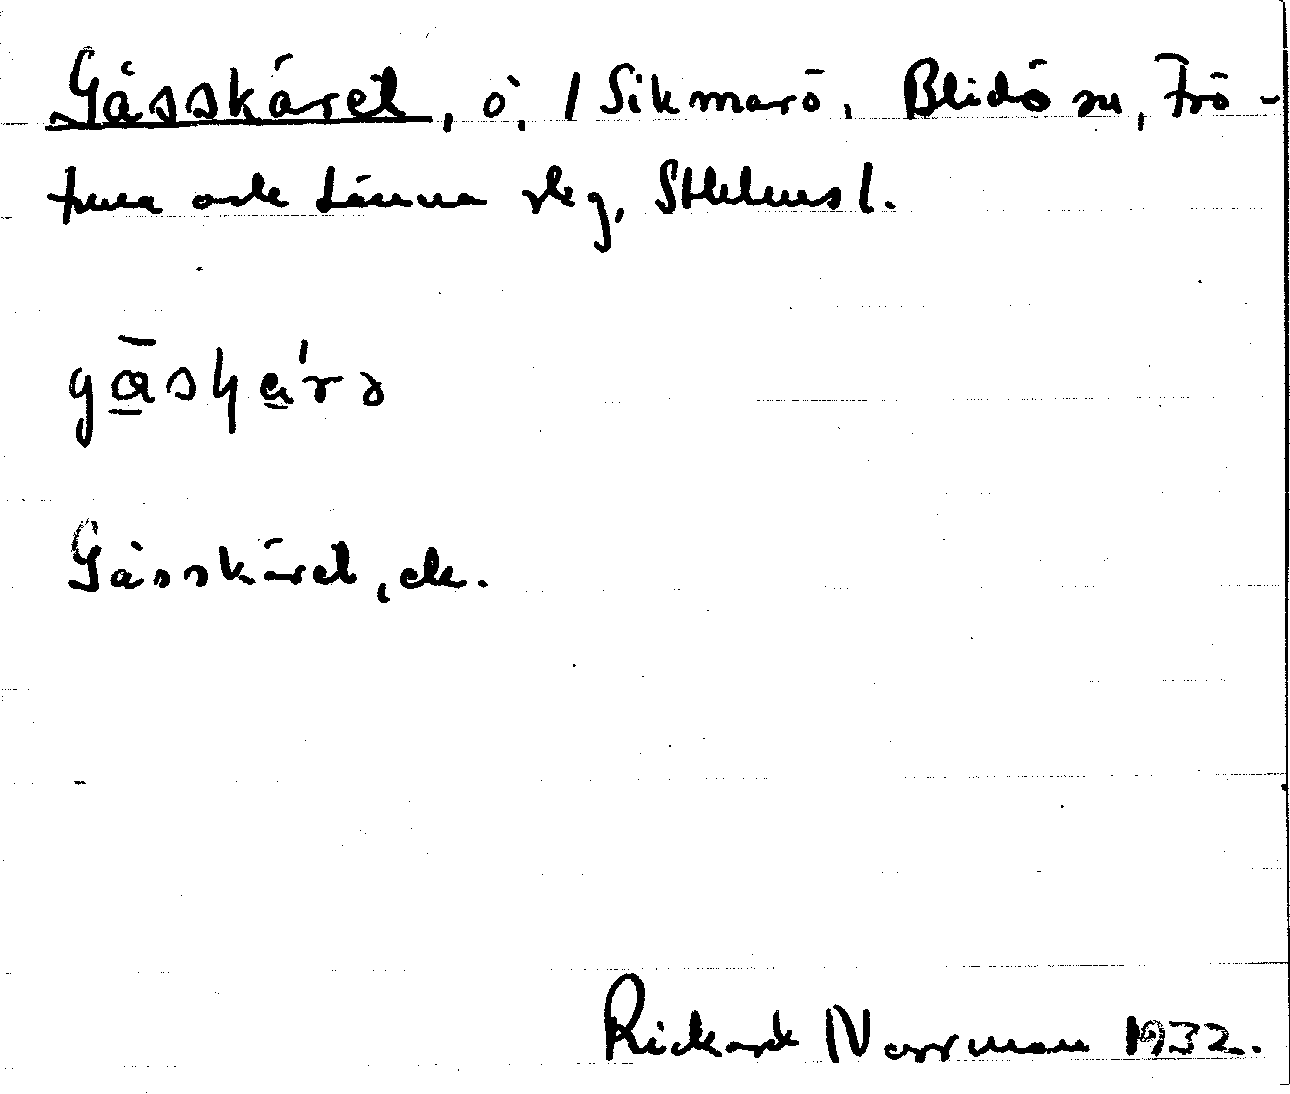 Gåsskäret, ö, / Sikmarö, Blidö sn, Frö-
tuna och Länna skg, Sthlms l.
Gåsskäret, ek.
Rickard Norrman 1932.